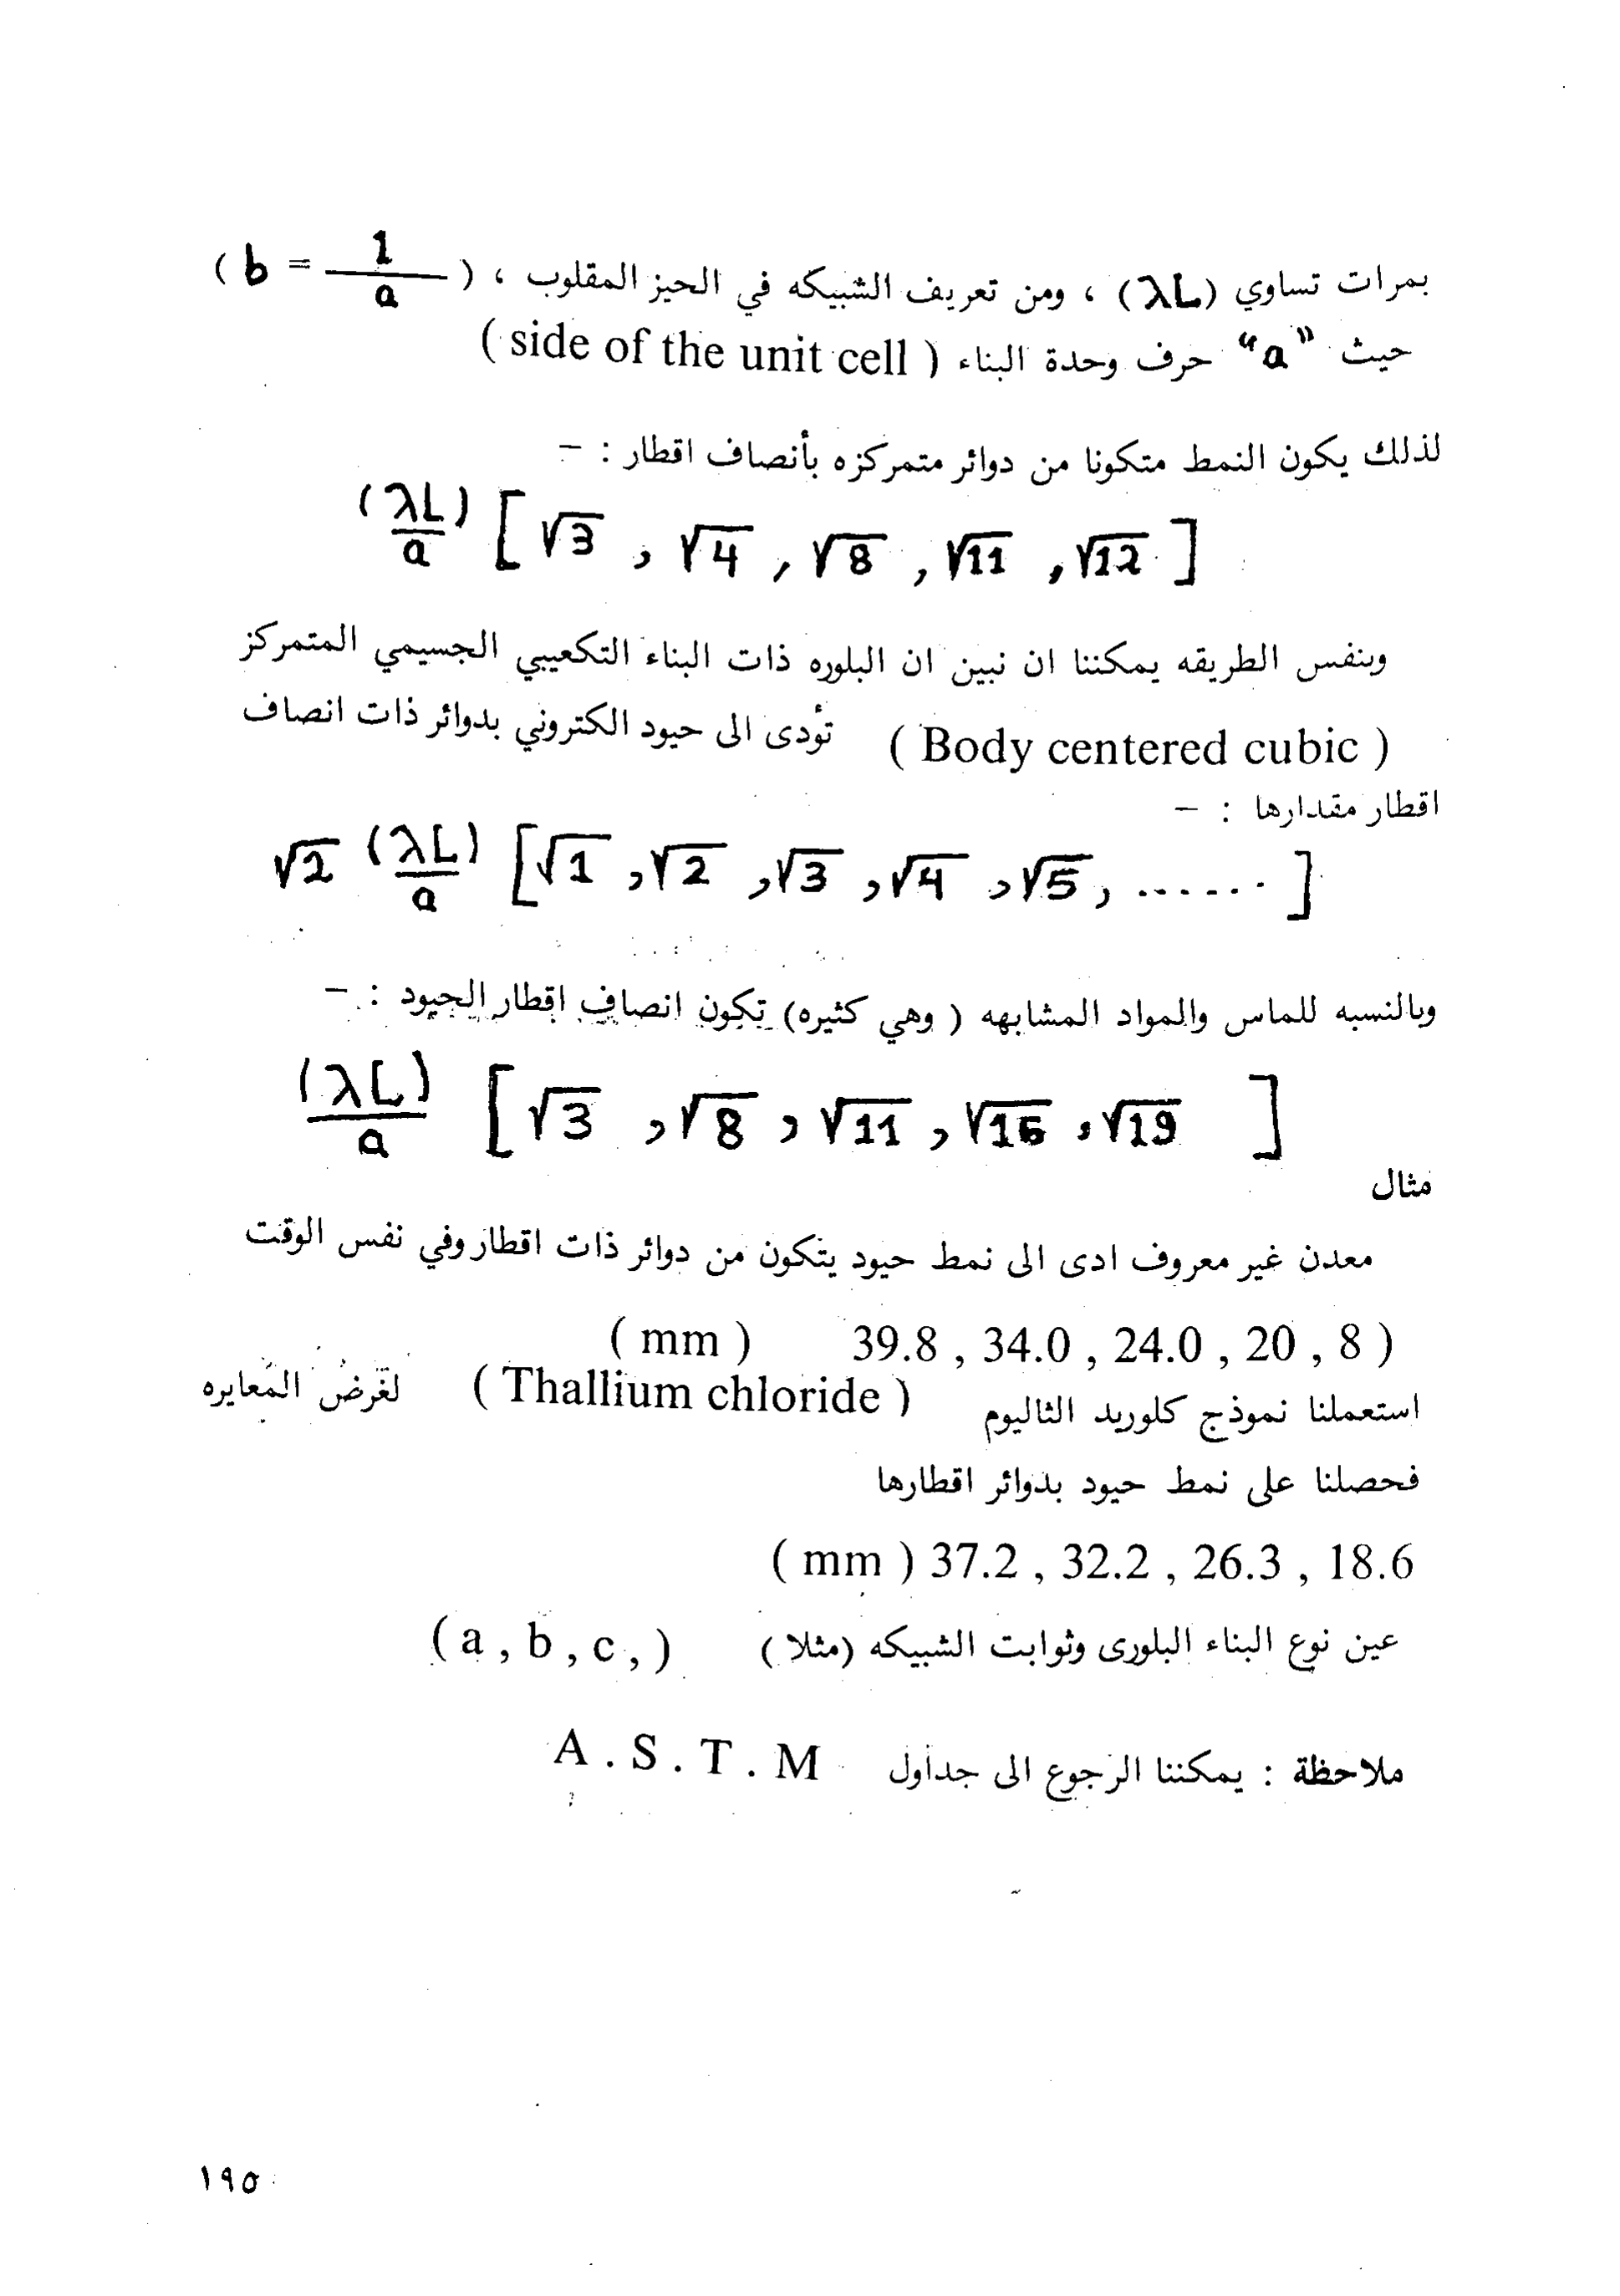 بمرات تساوي (λL) ، ومن تعريف الشبيكه في الحيز المقلوب ، ( b = 1/a )
حيث "a" حرف وحدة البناء ( side of the unit cell )
لذلك يكون النمط متكونا من دوائر متمركزه بأنصاف اقطار : –
(λL)/a [ √3 , √4 , √8 , √11 , √12 ]
وبنفس الطريقه يمكننا ان نبين ان البلوره ذات البناء التكعيبي الجسيمي المتمركز
( Body centered cubic ) تؤدى الى حيود الكتروني بدوائر ذات انصاف
اقطار مقدارها : –
√2 (λL)/a [ √1 , √2 , √3 , √4 , √5 , ...... ]
وبالنسبه للماس والمواد المشابهه ( وهي كثيره) تكون انصاف اقطار الحيود : –
(λL)/a [ √3 , √8 , √11 , √16 , √19 ]
مثال
معدن غير معروف ادى الى نمط حيود يتكون من دوائر ذات اقطار وفي نفس الوقت
( mm ) 39.8 , 34.0 , 24.0 , 20 , 8 )
استعملنا نموذج كلوريد الثاليوم ( Thallium chloride ) لغرض المعايره
فحصلنا على نمط حيود بدوائر اقطارها
( mm ) 37.2 , 32.2 , 26.3 , 18.6
عين نوع البناء البلورى وثوابت الشبيكه (مثلا ) ( a , b , c , )
ملاحظة : يمكننا الرجوع الى جداول A . S . T . M
١٩٥